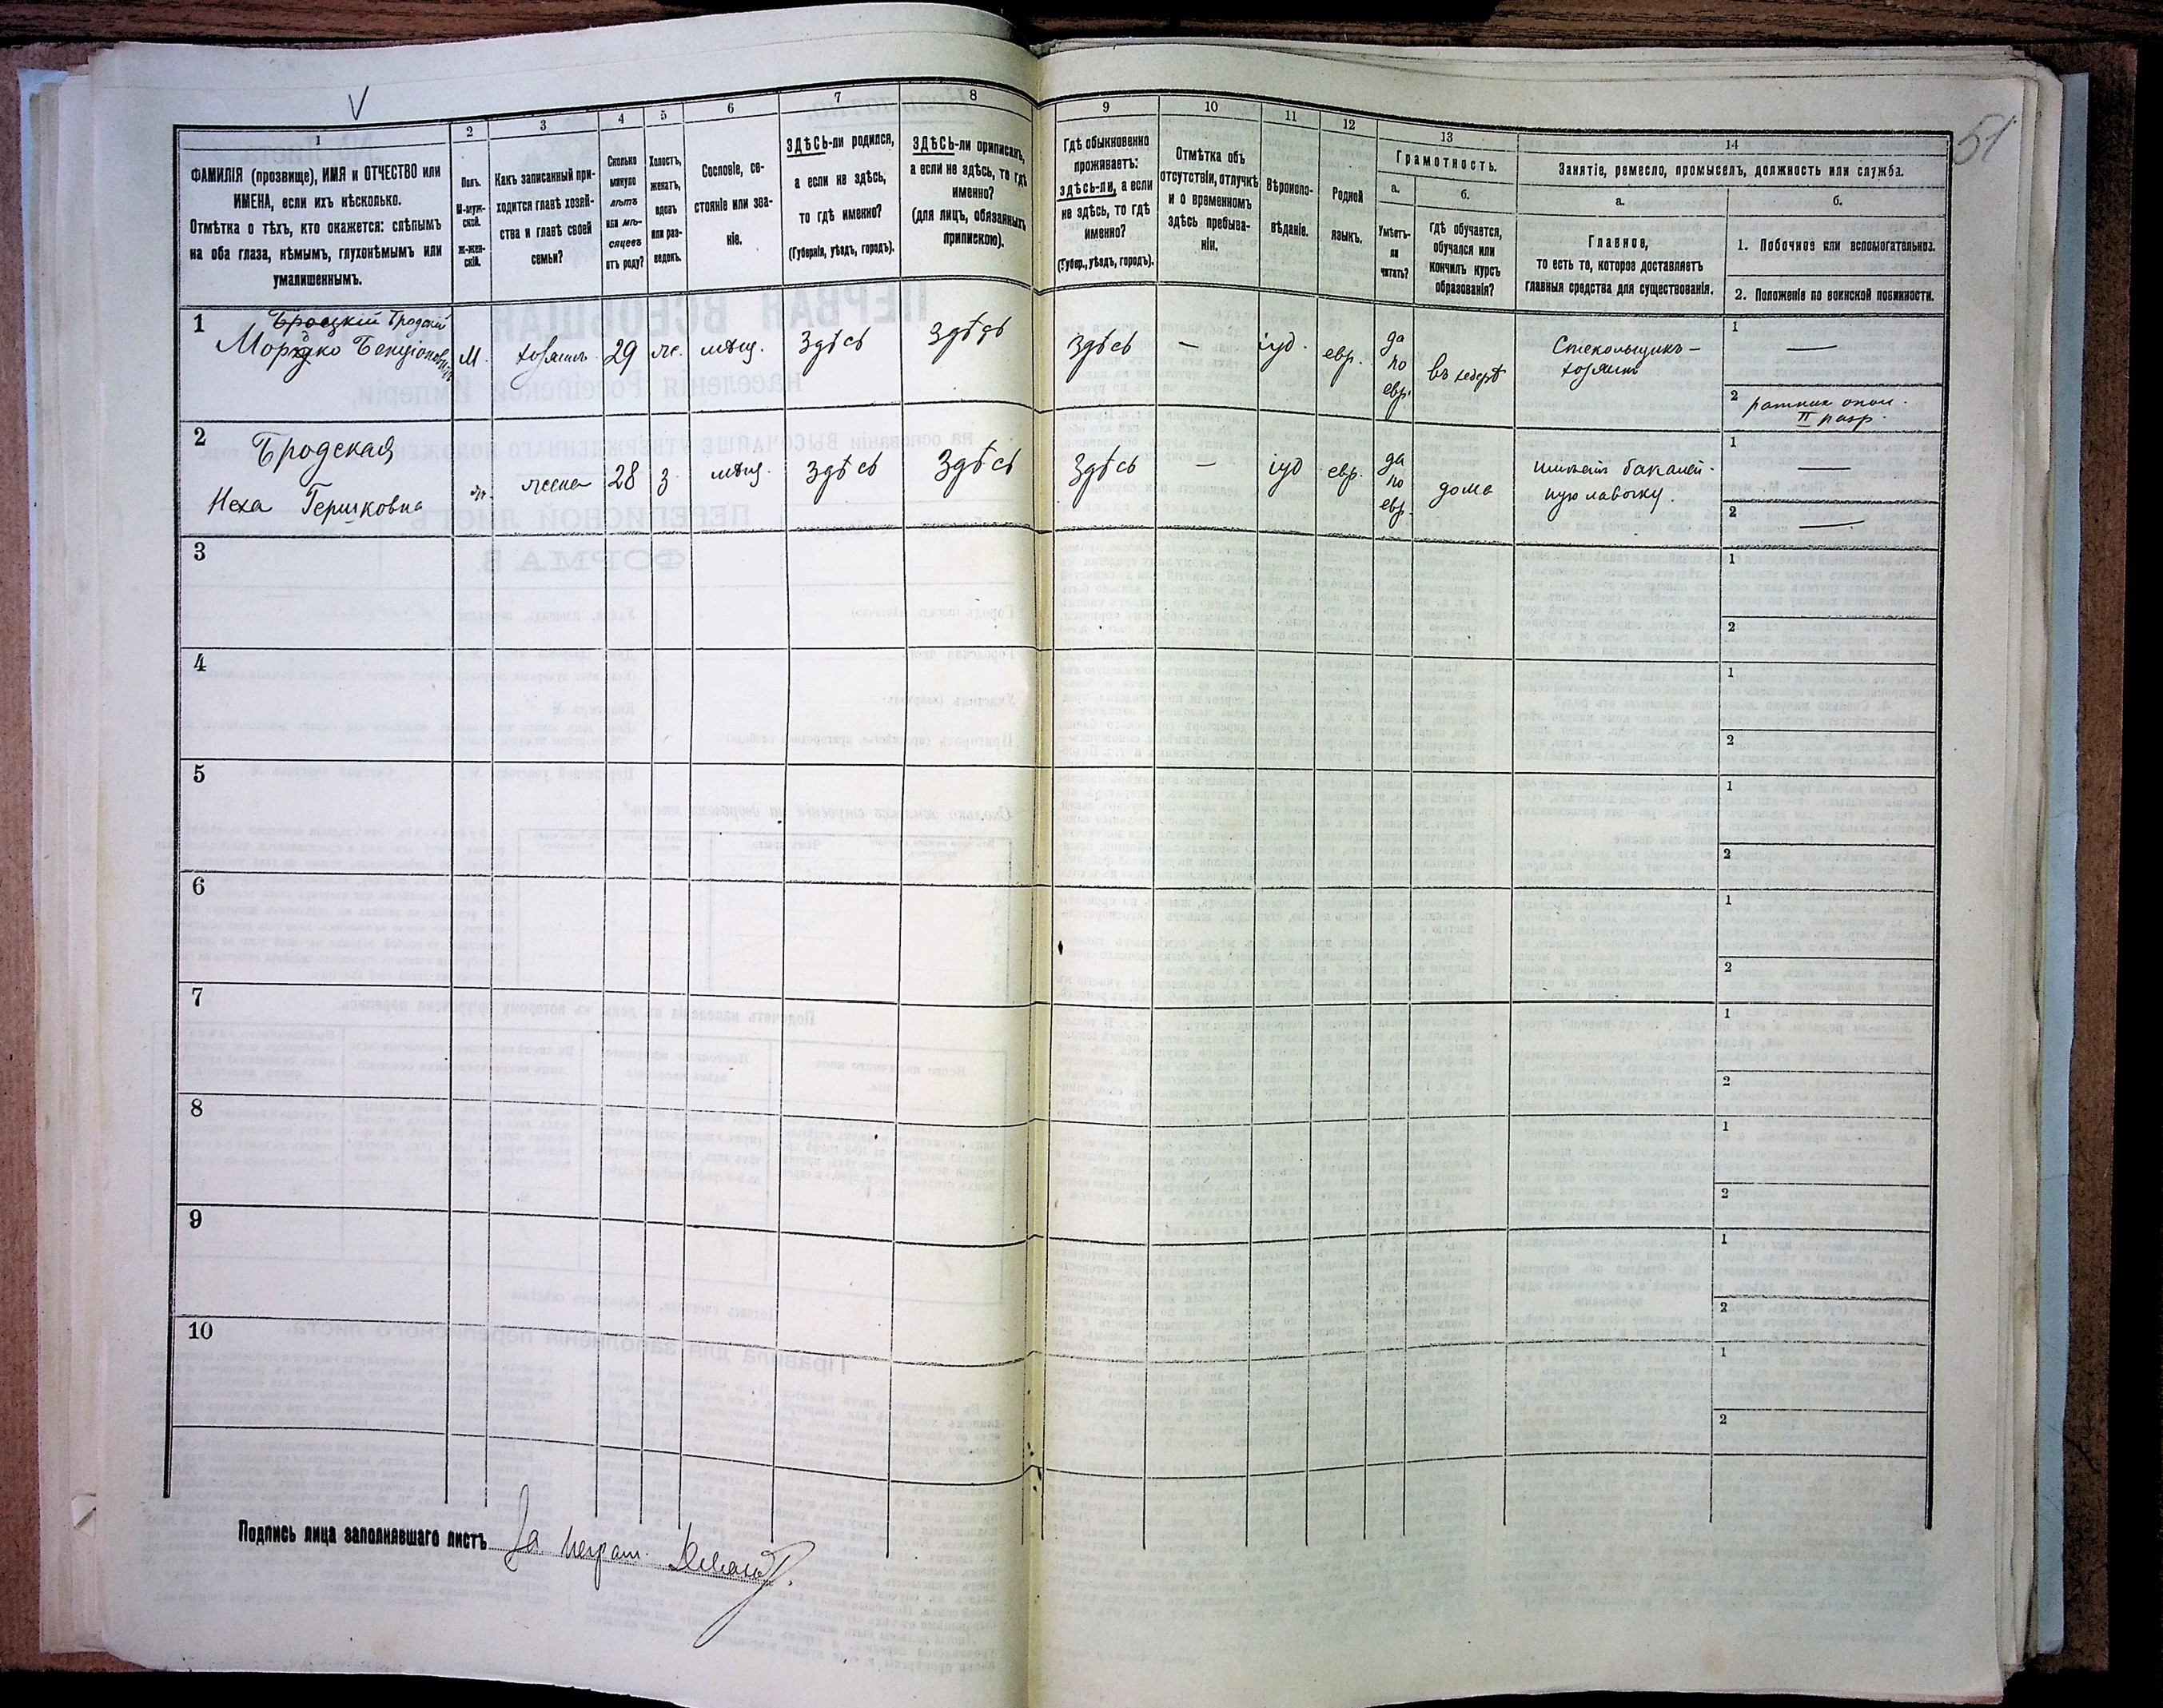 51
1
2
3
4
5
6
7
8
9
10
11
12
13
14
ФАМИЛІЯ (прозвище), ИМЯ и ОТЧЕСТВО или
ИМЕНА, если ихъ нѣсколько.
Отмѣтка о тѣхъ, кто окажется: слѣпымъ
на оба глаза, нѣмымъ, глухонѣмымъ или
умалишеннымъ.
Полъ.
М-муж-
ской.
Ж-жен-
скій.
Какъ записанный при-
ходится главѣ хозяй-
ства и главѣ своей
семьи?
Сколько
минуло
лѣтъ
или мѣ-
сяцевъ
отъ роду?
Холостъ,
женатъ,
вдовъ
или раз-
веденъ.
Сословіе, со-
стояніе или зва-
ніе.
ЗДѢСЬ-ли родился,
а если не здѣсь,
то гдѣ именно?
(Губернія, уѣздъ, городъ).
ЗДѢСЬ-ли приписанъ,
а если не здѣсь, то гдѣ
именно?
(для лицъ, обязанныхъ
припискою).
Гдѣ обыкновенно
проживаетъ:
здѣсь-ли, а если
не здѣсь, то гдѣ
именно?
(Губер., уѣздъ, городъ).
Отмѣтка объ
отсутствіи, отлучкѣ
и о временномъ
здѣсь пребыва-
ніи.
Вѣроиспо-
вѣданіе.
Родной
языкъ.
Грамотность.
а.
б.
Умѣетъ-
ли
читать?
гдѣ обучается,
обучался или
кончилъ курсъ
образованія?
Занятіе, ремесло, промыселъ, должность или служба.
а.
б.
Главное,
то есть то, которое доставляетъ
главныя средства для существованія.
1. Побочное или вспомогательное.
2. Положеніе по воинской повинности.
1
Бродскій
Мордко Бенціоновичъ
М.
хозяинъ
29
ж.
мѣщ.
Здѣсь
Здѣсь
Здѣсь
—
іуд.
евр.
да
по
евр.
въ хедерѣ
Стекольщикъ –
хозяинъ
1
—
2
ратник опол.
II разр.
2
Бродская
Неха Гершковна
ж.
жена
28
з.
мѣщ.
Здѣсь
Здѣсь
Здѣсь
—
іуд
евр.
да
по
евр.
дома
имѣетъ бакалей-
ную лавочку.
1
—
2
—
3
1
2
4
1
2
5
1
2
6
1
2
7
1
2
8
1
2
9
1
2
10
1
2
Подпись лица заполнявшаго листъ За неграм.